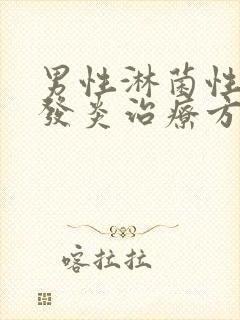 男性淋菌性
發炎治療方
喀拉拉